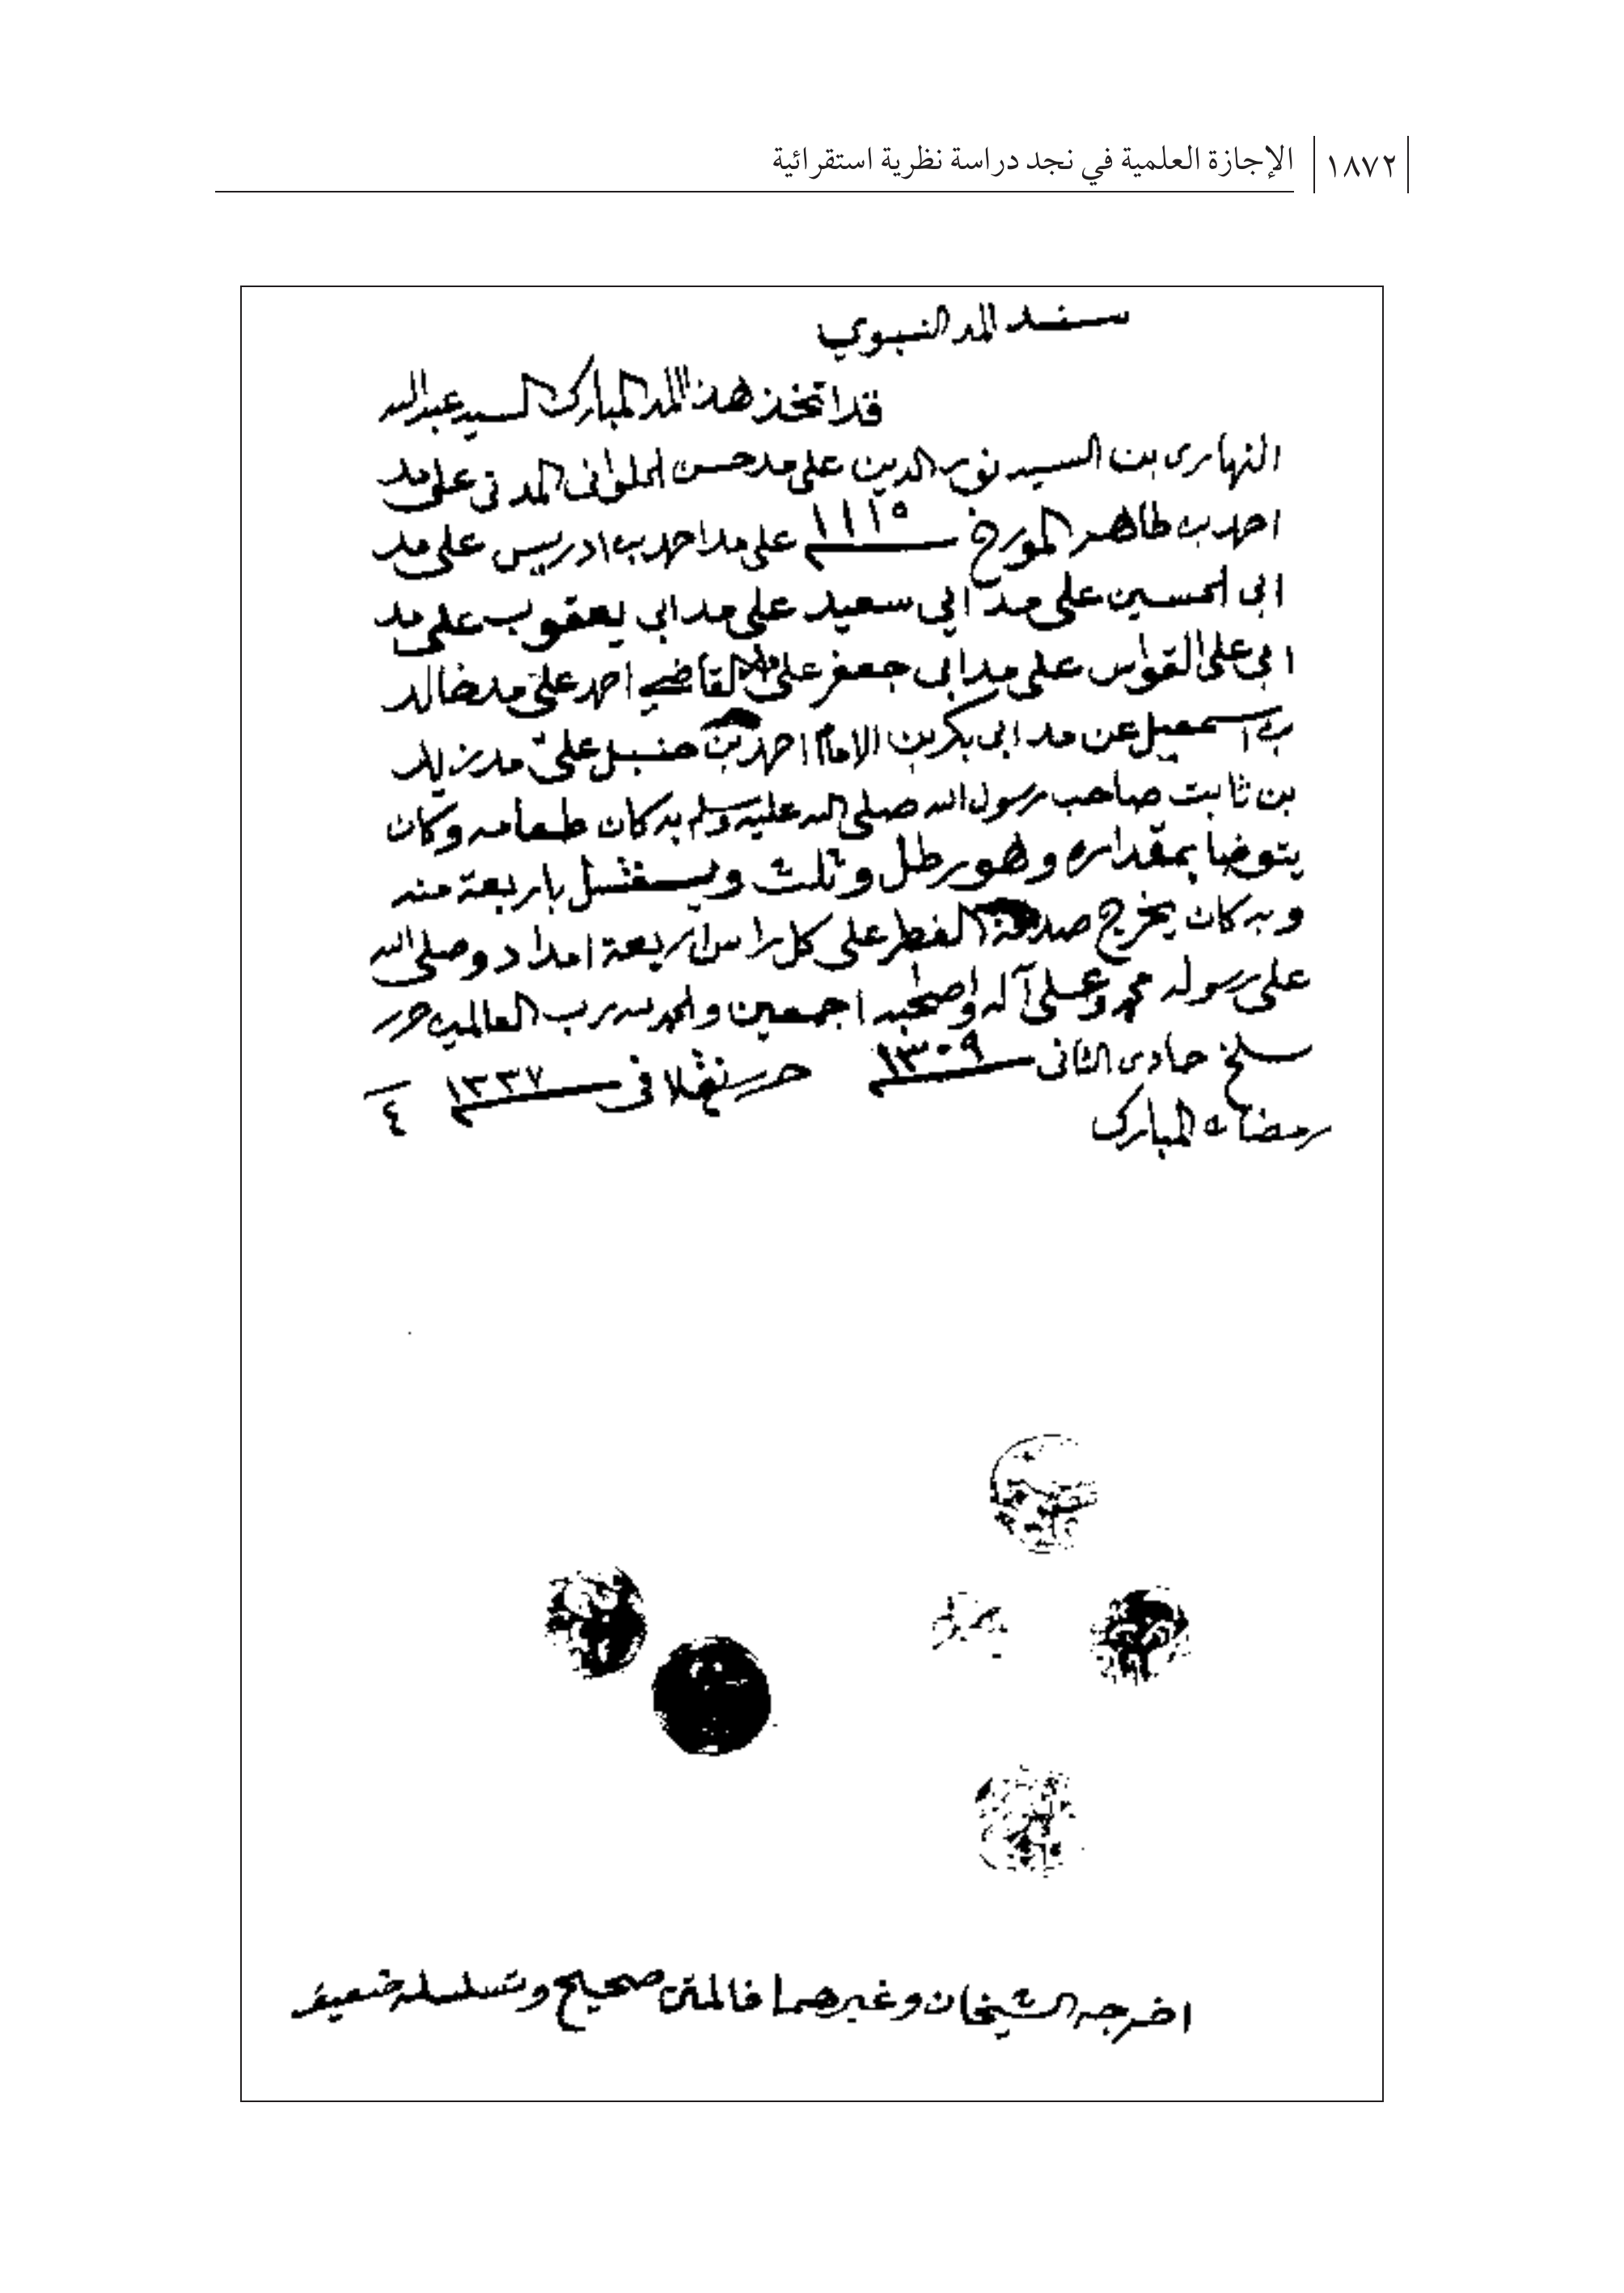 ١٨٧٢ الإجازة العلمية في نجد دراسة نظرية استقرائية
سند المد النبوي
قد اتخذ هذا المد المبارك السيد عبد الله
النهاري بن السيد نور الدين على مد حسن الحلواني المدني على مد
احمد بن طاهر المورخ ١١١٥ على مد احمد بن ادريس على مد
ابي الحسين على مد ابي سعيد على مد ابي يعقوب على مد
ابي على القواس على مد ابي جعفر على القاضي احمد على مد خالد
بن اسمعيل عن مد ابي بكر بن الامام احمد بن حنبل على مد زيد
بن ثابت صاحب رسول الله صلى الله عليه وسلم به كان طعامه وكان
يتوضا بمقداره وهو رطل وثلث ويغتسل باربعة منه
وبه كان يخرج صدقة الفطر على كل راس اربعة امداد وصلى الله
على رسوله محمد وعلى آله واصحبه اجمعين والحمد لله رب العالمين حرر
سلخ جمادى الثاني ١٣٠٩ حرر نقلا في ١٣٣٧ ٤
رمضان المبارك
اخرجه الشيخان وغيرهما فالمتن صحيح وتسلسله ضعيف